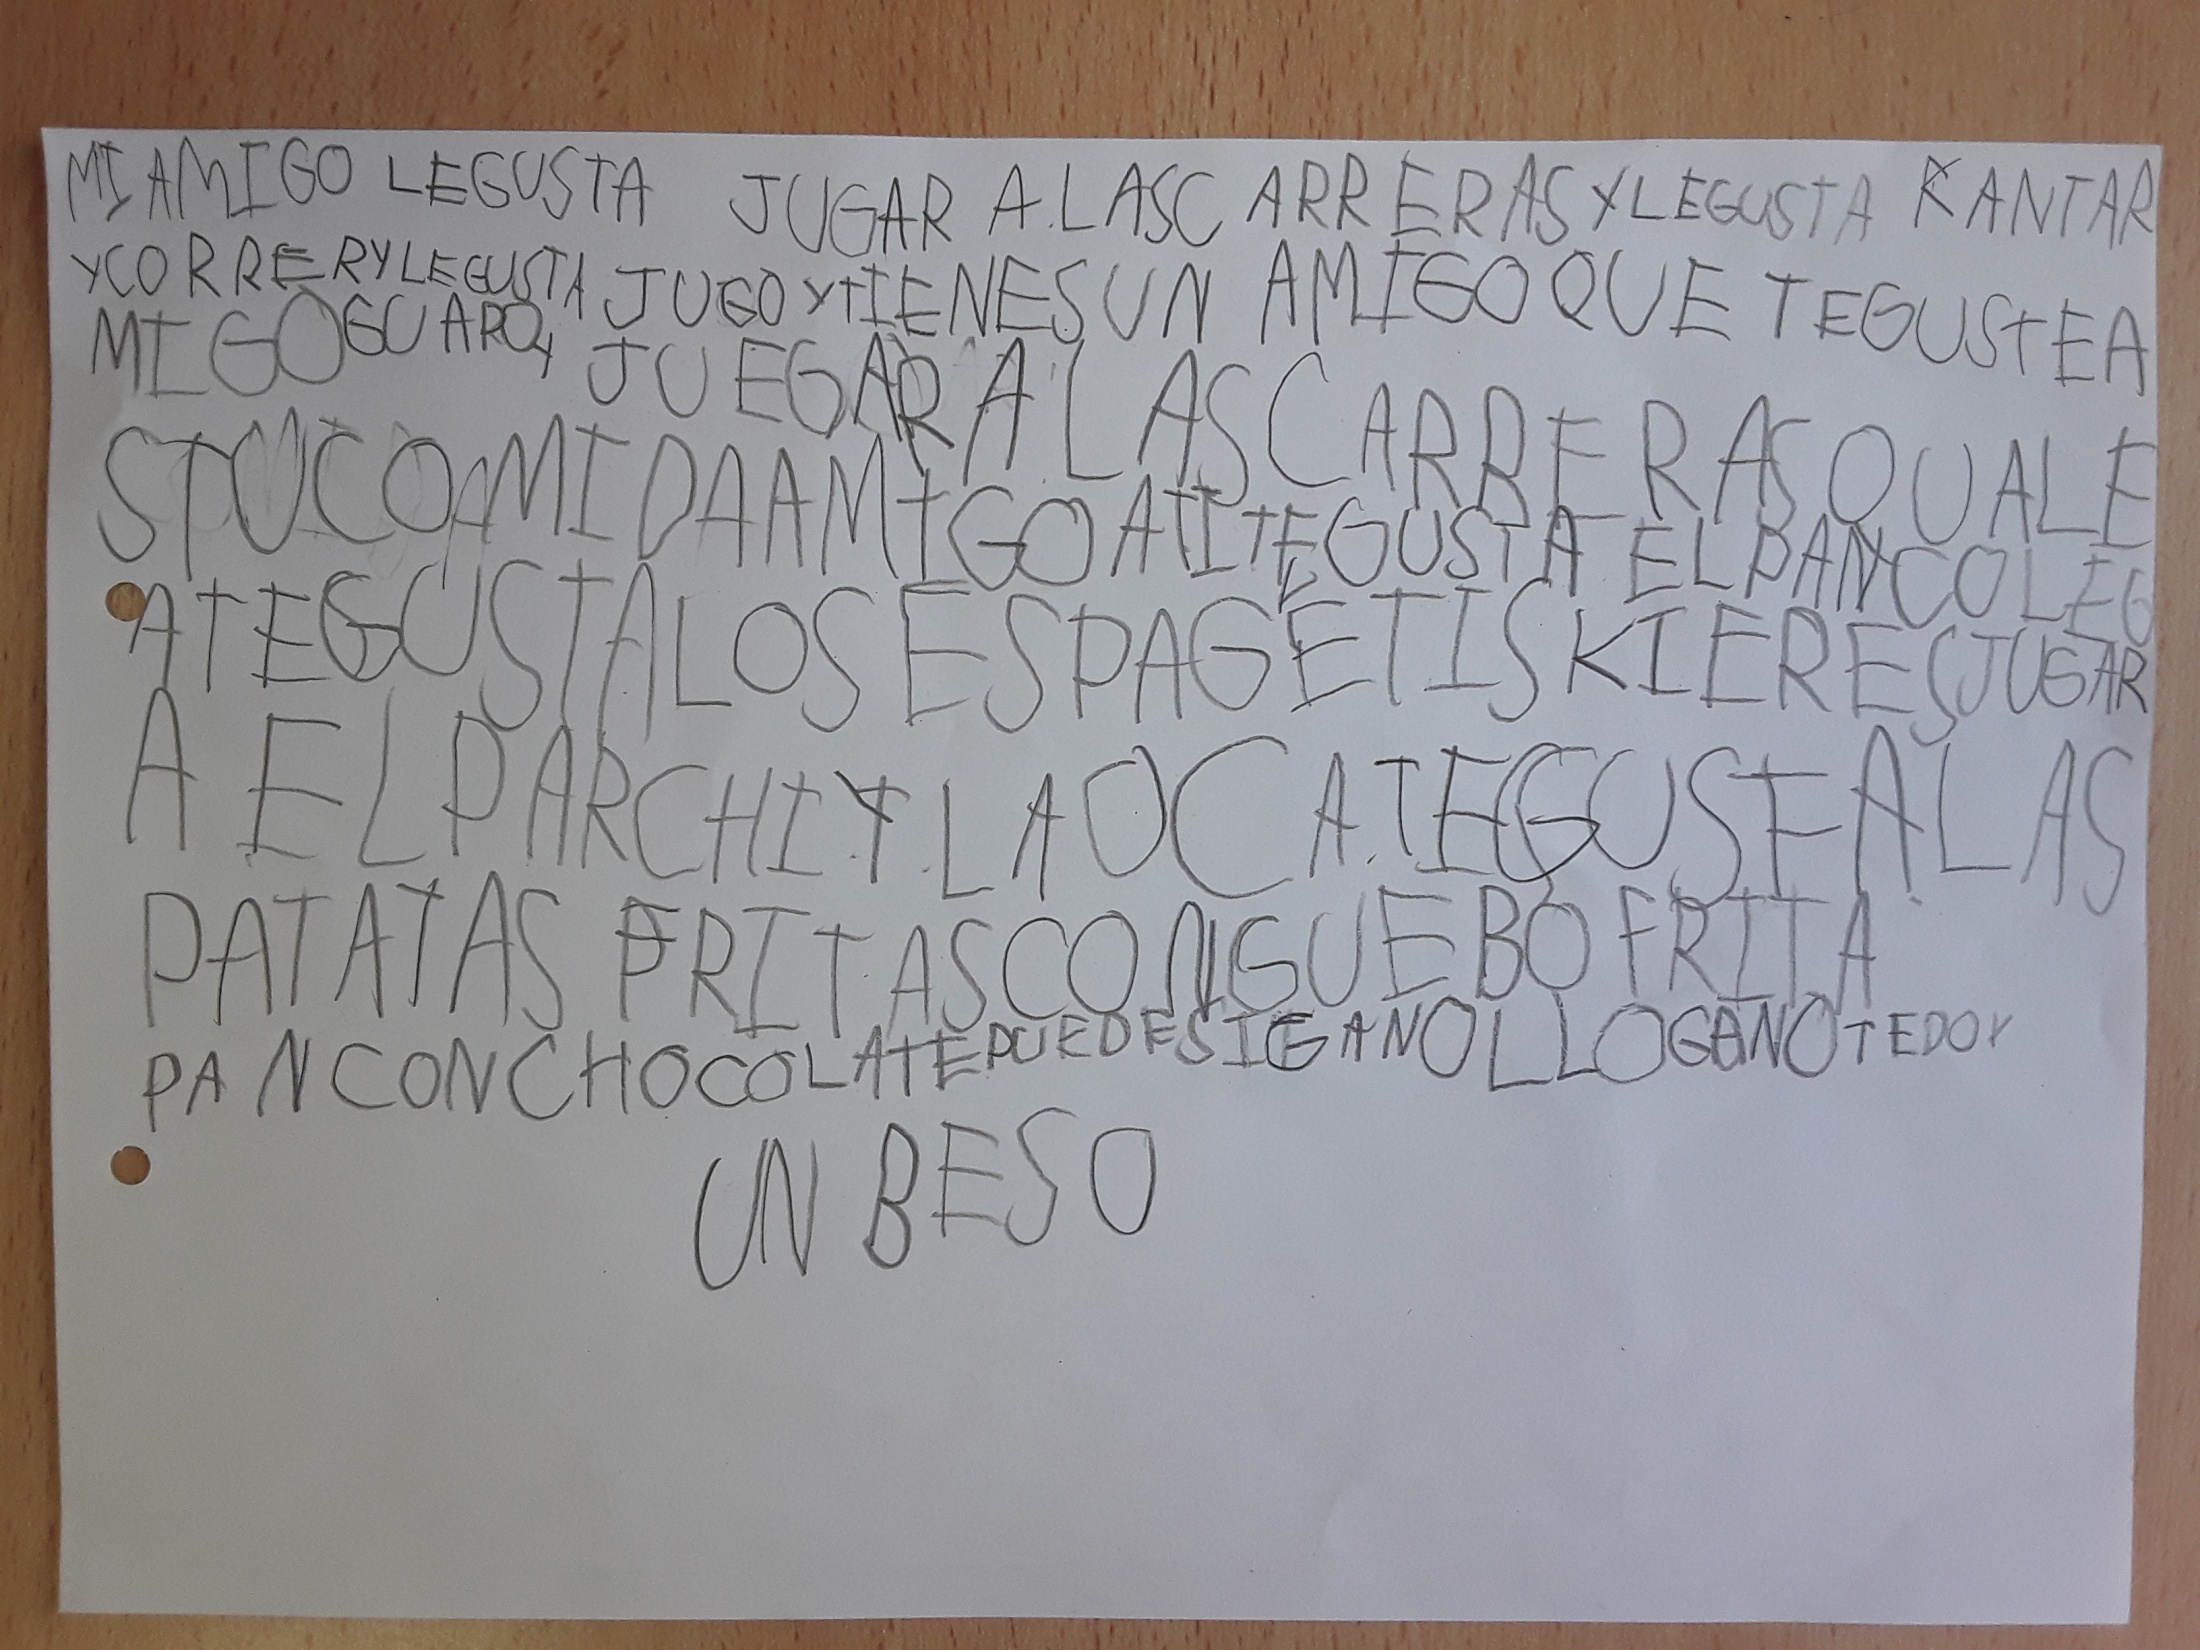 MI AMIGO LEGUSTA JUGAR A.LASC ARRERAS Y LEGUSTA KANTAR
YCORRER Y LEGUSTA JUGO Y TIENES UN AMIGO QUE TEGUSTEA
MIGO GUARO Y JUEGAR A LAS CARRERAS QUALE
STUCOMIDA AMIGO ATI TEGUSTA EL PANCOLEG
ATEGUSTA LOS ESPAGETIS KIERES JUGAR
A EL PARCHI Y.LA OCA.TEGUSTA LAS
PATATAS FRITAS CON GUEBO FRITA
PAN CON CHOCOLATE PUEDE SIGANO LLO GANO TEDOY
UN BESO